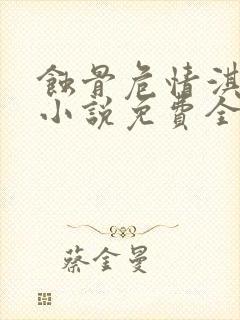 蝕骨危情淇
小說免費全
蔡金曼